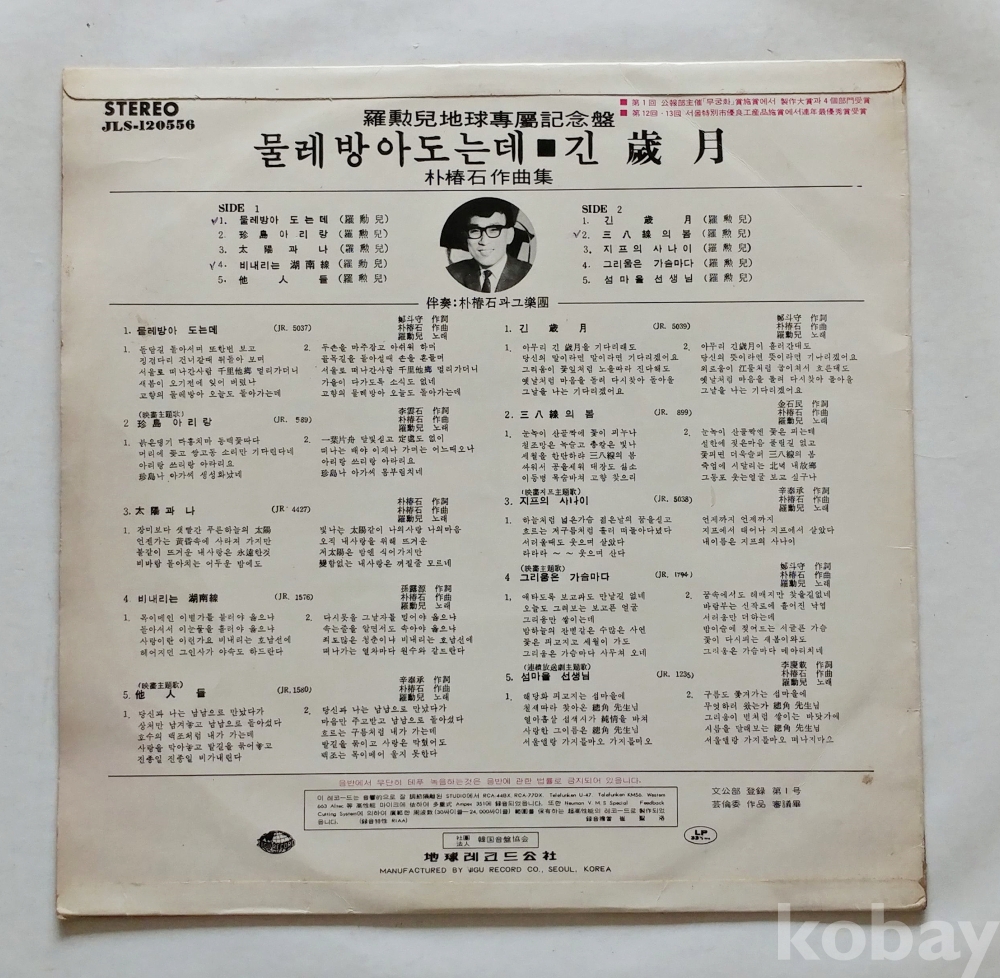 STEREO
JLS-120556
■ 第1回 公報部主催「무궁화」賞施賞에서 製作大賞과 4個部門受賞
■ 第12回·13回 서울特別市優良工産品施賞에서連年最優秀賞受賞
羅勲兒地球專屬記念盤
물레방아도는데■긴 歲 月
朴椿石作曲集
SIDE 1
1. 물레방아 도는데 (羅 勲 兒)
2. 珍島아리랑 (羅 勲 兒)
3. 太 陽 과 나 (羅 勲 兒)
4. 비내리는 湖南線 (羅 勲 兒)
5. 他 人 들 (羅 勲 兒)
SIDE 2
1. 긴 歲 月 (羅 勲 兒)
2. 三八線의봄 (羅 勲 兒)
3. 지프의 사나이 (羅 勲 兒)
4. 그리움은 가슴마다 (羅 勲 兒)
5. 섬마을 선생님 (羅 勲 兒)
伴奏:朴椿石과그樂團
1. 물레방아 도는데 (JR. 5037)
鄭斗守 作詞
朴椿石 作曲
羅勲兒 노래
1. 돌담길 돌아서며 또한번 보고
징검다리 건너갈때 뒤돌아 보며
서울로 떠나간사람 千里他鄕 멀리가더니
새봄이 오기전에 잊어 버렸나
고향의 물레방아 오늘도 돌아가는데
2. 두손을 마주잡고 아쉬워 하며
골목길을 돌아설때 손을 흔들며
서울로 떠나간사람 千里他鄕 멀리가더니
가을이 다가도록 소식도 없네
고향의 물레방아 오늘도 돌아가는데
(映畵主題歌)
2 珍島 아리랑 (JR. 589)
李雲石 作詞
朴椿石 作曲
羅勲兒 노래
1. 붉은댕기 마홍치마 동백꽃따다
머리에 꽂고 쌍고동 소리만 기다린다네
아리랑 쓰리랑 아라리요
珍島나 아가씨 성성화났네
2. 一葉片舟 달빛싣고 定處도 없이
떠나는 배야 이지나 가며는 어느때오나
아리랑 쓰리랑 아라리요
珍島나 아가씨 몸부림치네
3. 太陽과나 (JR. 4427)
朴椿石 作詞
朴椿石 作曲
羅勲兒 노래
1. 장미보다 샛빨간 푸른하늘의 太陽
언젠가는 黃昏속에 사라져 가지만
불같이 뜨거운 내사랑은 永遠한것
비바람 몰아치는 어두운 밤에도
빛나는 太陽같이 나의사랑 나의마음
오직 내사랑을 위해 뜨거운
저太陽은 밤엔 식어가지만
變함없는 내사랑은 꺼질줄 모르네
4 비내리는 湖南線 (JR. 1576)
孫露源 作詞
朴椿石 作曲
羅勲兒 노래
1. 목이메인 이별가를 불러야 옳으냐
돌아서서 이눈물을 흘려야 옳으냐
사랑이란 이런가요 비내리는 호남선에
헤어지던 그인사가 야속도 하드란다
2. 다시못올 그날자를 믿어야 옳으냐
속는줄을 알면서도 속아야 옳으냐
죄도많은 청춘이냐 비내리는 호남선에
떠나가는 열차마다 원수와 같드란다
(映畵主題歌)
5. 他人들 (JR.1580)
辛奉承 作詞
朴椿石 作曲
羅勲兒 노래
1. 당신과 나는 남남으로 만났다가
상처만 남겨놓고 남남으로 돌아섰다
호수의 백조처럼 내가 가는데
사랑을 막아놓고 발길을 묶어놓고
진종일 진종일 비가내린다
2. 당신과 나는 남남으로 만났다가
마음만 주고받고 남남으로 돌아섰다
흐르는 구름처럼 내가 가는데
발길을 묶이고 사랑은 막혔어도
백조는 목이메어 울지 못한다
1. 긴 歲 月 (JR. 5039)
鄭斗守 作詞
朴椿石 作曲
羅勲兒 노래
1. 아무리 긴歲月을 기다리래도
당신의 말이라면 말이라면 기다리겠어요
그리움이 꽃잎처럼 노을따라 진다해도
옛날처럼 마음을 돌려 다시찾아 돌아올
그날을 나는 기다리겠어요
2. 아무리 긴歲月이 흘러간대도
당신의 뜻이라면 뜻이라면 기다리겠어요
외로움이 江물처럼 굽이쳐서 흐른대도
옛날처럼 마음을 돌려 다시찾아 돌아올
그날을 나는 기다리겠어요
2. 三八線의 봄 (JR. 899)
金石民 作詞
朴椿石 作曲
羅勲兒 노래
1. 눈녹이 산골짝에 꽃이 피누나
철조망은 녹슬고 총칼은 빛나
세월을 한탄하랴 三八線의 봄
싸워서 공을세워 대장도 싫소
이등병 목숨바쳐 고향 찾으리
2. 눈녹이 산골짝엔 꽃은 피는데
설한에 젖은마음 풀릴길 없고
꽃피면 더욱슬퍼 三八線의 봄
죽엄에 시달리는 北녘 내故鄕
그동포 웃는얼굴 보고 싶구나
(映畵지프主題歌)
3. 지프의 사나이 (JR. 5038)
辛奉承 作詞
朴椿石 作曲
羅勲兒 노래
1. 하늘처럼 넓은가슴 젊은날의 꿈을싣고
흐르는 저구름처럼 흘러 떠돌아다녔다
서러울때도 웃으며 살았다
라라라 ~ ~ 웃으며 산다
언제까지 언제까지
지프에서 태어나 지프에서 살았다
내이름은 지프의 사나이
(映畵主題歌)
4 그리움은 가슴마다 (JR. 1794)
鄭斗守 作詞
朴椿石 作曲
羅勲兒 노래
1. 애타도록 보고파도 만날길 없네
오늘도 그려보는 보고픈 얼굴
그리움만 쌓이는데
밤하늘의 잔별같은 수많은 사연
꽃은 피고지고 세월이 가도
그리움은 가슴마다 사무쳐 오네
2. 꿈속에서도 헤매지만 찾을길없네
바람부는 신작로에 흩어진 낙엽
서러움만 더하는데
밤이슬에 젖어드는 서글픈 가슴
꽃이 다시피는 새봄이와도
그리움은 가슴마다 메아리치네
(連續放送劇主題歌)
5. 섬마을 선생님 (JR. 1235)
李慶載 作詞
朴椿石 作曲
羅勲兒 노래
1. 해당화 피고지는 섬마을에
철새따라 찾아온 總角 先生님
열아홉살 섬색시가 純情을 바쳐
사랑한 그이름은 總角 先生님
서울엘랑 가지를마오 가지를마오
2. 구름도 쫓겨가는 섬마을에
무엇하러 왔는가 總角 先生님
그리움이 별처럼 쌓이는 바닷가에
시름을 달래보는 總角 先生님
서울엘랑 가지를마오 떠나지마오
음반에서 무단히 테푸 녹음하는것은 음반에 관한 법률로 금지되어 있읍니다.
이 레코—드는 音響的으로 잘 調節隔離된 STUDIO에서 RCA-44BX, RCA-77DX, Telefunken U-47, Telefunken KM56, Western
660 Altec 等 高性能 마이크에 依하여 多重式 Ampex 351에 錄音되었읍니다. 또한 Neuman V M S Special Feedback
Cutting System에 의하여 廣範한 周波数 (30싸이클—24,000싸이클) 範圍를 保有하는 超高性能의 레코—드로 製作되었
읍니다. (錄音特性 RIAA)
文公部 登録 第1号
芸倫委 作品 審議畢
社團法人 韓国音盤協会
地球레코드公社
MANUFACTURED BY JIGU RECORD CO., SEOUL, KOREA
LP
33⅓
kobay